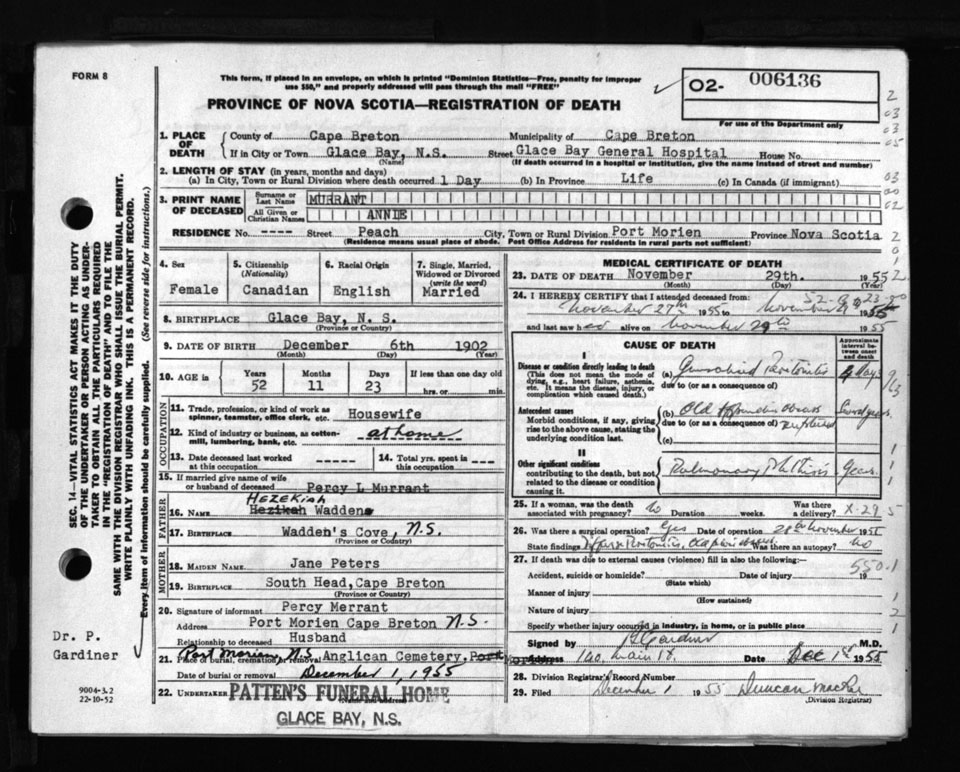 FORM 8
This form, if placed in an envelope, on which is printed "Dominion Statistics—Free, penalty for improper
use $50," and properly addressed will pass through the mail "FREE"
PROVINCE OF NOVA SCOTIA—REGISTRATION OF DEATH
02- 006136
For use of the Department only
1. PLACE OF DEATH
County of Cape Breton Municipality of Cape Breton
If in City or Town Glace Bay, N.S. Street Glace Bay General Hospital House No.
(Name) (If death occurred in a hospital or institution, give the name instead of street and number)
2. LENGTH OF STAY (in years, months and days)
(a) In City, Town or Rural Division where death occurred 1 Day (b) In Province Life (c) In Canada (if immigrant)
3. PRINT NAME OF DECEASED
Surname or Last Name MURRANT
All Given or Christian Names ANNIE
RESIDENCE No. ---- Street Peach City, Town or Rural Division Port Morien Province Nova Scotia
(Residence means usual place of abode. Post Office Address for residents in rural parts not sufficient)
4. Sex Female
5. Citizenship (Nationality) Canadian
6. Racial Origin English
7. Single, Married, Widowed or Divorced (write the word) Married
8. BIRTHPLACE Glace Bay, N. S.
(Province or Country)
9. DATE OF BIRTH December 6th 1902
(Month) (Day) (Year)
10. AGE in Years 52 Months 11 Days 23 If less than one day old hrs. or min.
OCCUPATION
11. Trade, profession, or kind of work as spinner, teamster, office clerk, etc. Housewife
12. Kind of industry or business, as cotton-mill, lumbering, bank, etc. at home
13. Date deceased last worked at this occupation -----
14. Total yrs. spent in this occupation ---
15. If married give name of wife or husband of deceased Percy L Murrant
FATHER
HEZEKIAH
16. NAME Hezikah Waddens
17. BIRTHPLACE Wadden's Cove, N.S.
(Province or Country)
MOTHER
18. MAIDEN NAME Jane Peters
19. BIRTHPLACE South Head, Cape Breton
(Province or Country)
20. Signature of informant Percy Merrant
Address Port Morien Cape Breton N.S.
Relationship to deceased Husband
Port Morien, N.S.
21. Place of burial, cremation or removal Anglican Cemetery, Port Morien
Date of burial or removal December 1, 1955
22. UNDERTAKER PATTEN'S FUNERAL HOME
(Name and address)
GLACE BAY, N.S.
MEDICAL CERTIFICATE OF DEATH
23. DATE OF DEATH November 29th. 1955
(Month) (Day) (Year)
24. I HEREBY CERTIFY that I attended deceased from:
November 27th 1955 to November 29
and last saw alive on November 29th 1955
CAUSE OF DEATH
Approximate interval between onset and death
I
Disease or condition directly leading to death
(This does not mean the mode of dying, e.g., heart failure, asthenia, etc. It means the disease, injury, or complication which caused death.)
(a) Generalised Peritonitis days
due to (or as a consequence of)
Antecedent causes
Morbid conditions, if any, giving rise to the above cause, stating the underlying condition last.
(b) Old ruptured Several years.
due to (or as a consequence of)
(c)
II
Other significant conditions
contributing to the death, but not related to the disease or condition causing it.
Pulmonary Phthisis years.
25. If a woman, was the death associated with pregnancy? No Duration weeks. Was there a delivery?
26. Was there a surgical operation? Yes Date of operation 28th November 1955
State findings Peritonitis, Was there an autopsy? No
27. If death was due to external causes (violence) fill in also the following:—
Accident, suicide or homicide? Date of injury 19
(State which)
Manner of injury
(How sustained)
Nature of injury
Specify whether injury occurred in industry, in home, or in public place
Signed by Gardiner M.D.
Address 160 Main St. Date Dec 1st 1955
28. Division Registrar's Record Number
29. Filed December 1 1955 Duncan MacRae
(Division Registrar)
SEC. 14—VITAL STATISTICS ACT MAKES IT THE DUTY
OF THE UNDERTAKER OR PERSON ACTING AS UNDER-
TAKER TO OBTAIN ALL THE PARTICULARS REQUIRED
IN THE "REGISTRATION OF DEATH" AND TO FILE THE
SAME WITH THE DIVISION REGISTRAR WHO SHALL ISSUE THE BURIAL PERMIT.
WRITE PLAINLY WITH UNFADING INK. THIS IS A PERMANENT RECORD.
Every item of information should be carefully supplied. (See reverse side for instructions.)
Dr. P.
Gardiner
9004-3.2
22-10-52
550.1
2
03
03
05
03
00
02
2
0
1
2
X-29 5